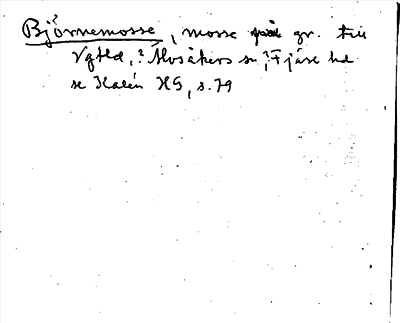 Björnemosse, mosse på gr. till
Vgtld, ? Älvsåkers sn, ? Fjäre hd
se Kalén HS, s. 79